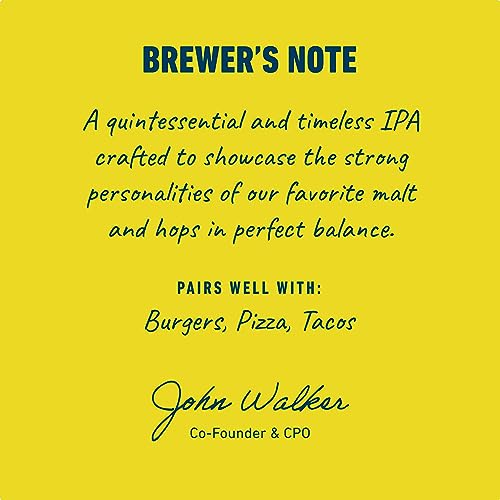 BREWER'S NOTE
A quintessential and timeless IPA
crafted to showcase the strong
personalities of our favorite malt
and hops in perfect balance.
PAIRS WELL WITH:
Burgers, Pizza, Tacos
John Walker
Co-Founder & CPO